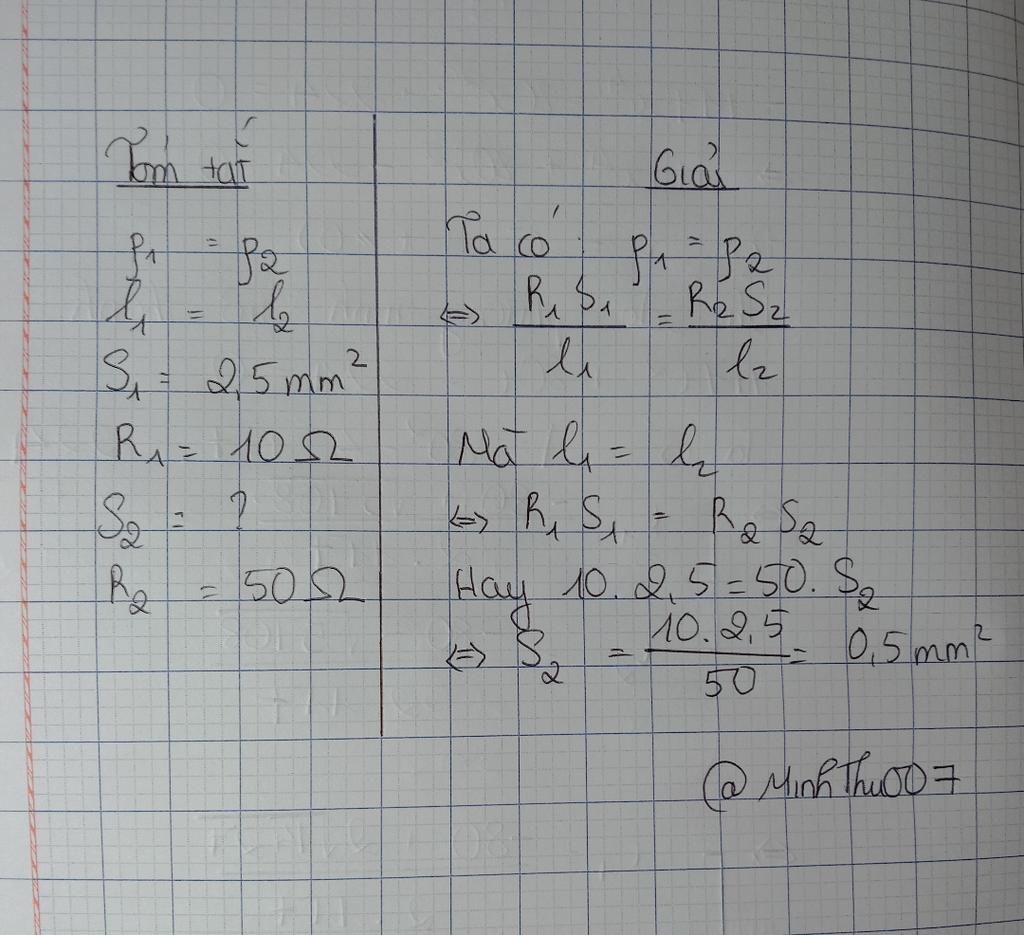 Tóm tắt
ρ1 = ρ2
l1 = l2
S1 = 2,5 mm²
R1 = 10 Ω
S2 = ?
R2 = 50 Ω
Giải
Ta có : ρ1 = ρ2
⇔ R1 S1 / l1 = R2 S2 / l2
Mà l1 = l2
⇔ R1 S1 = R2 S2
Hay 10. 2,5 = 50. S2
⇔ S2 = 10. 2,5 / 50 = 0,5 mm²
@MinhThu007